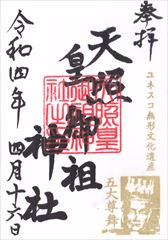 奉拝
ユネスコ無形文化遺産
五大尊舞
天照皇御祖神社
令和四年 四月十六日